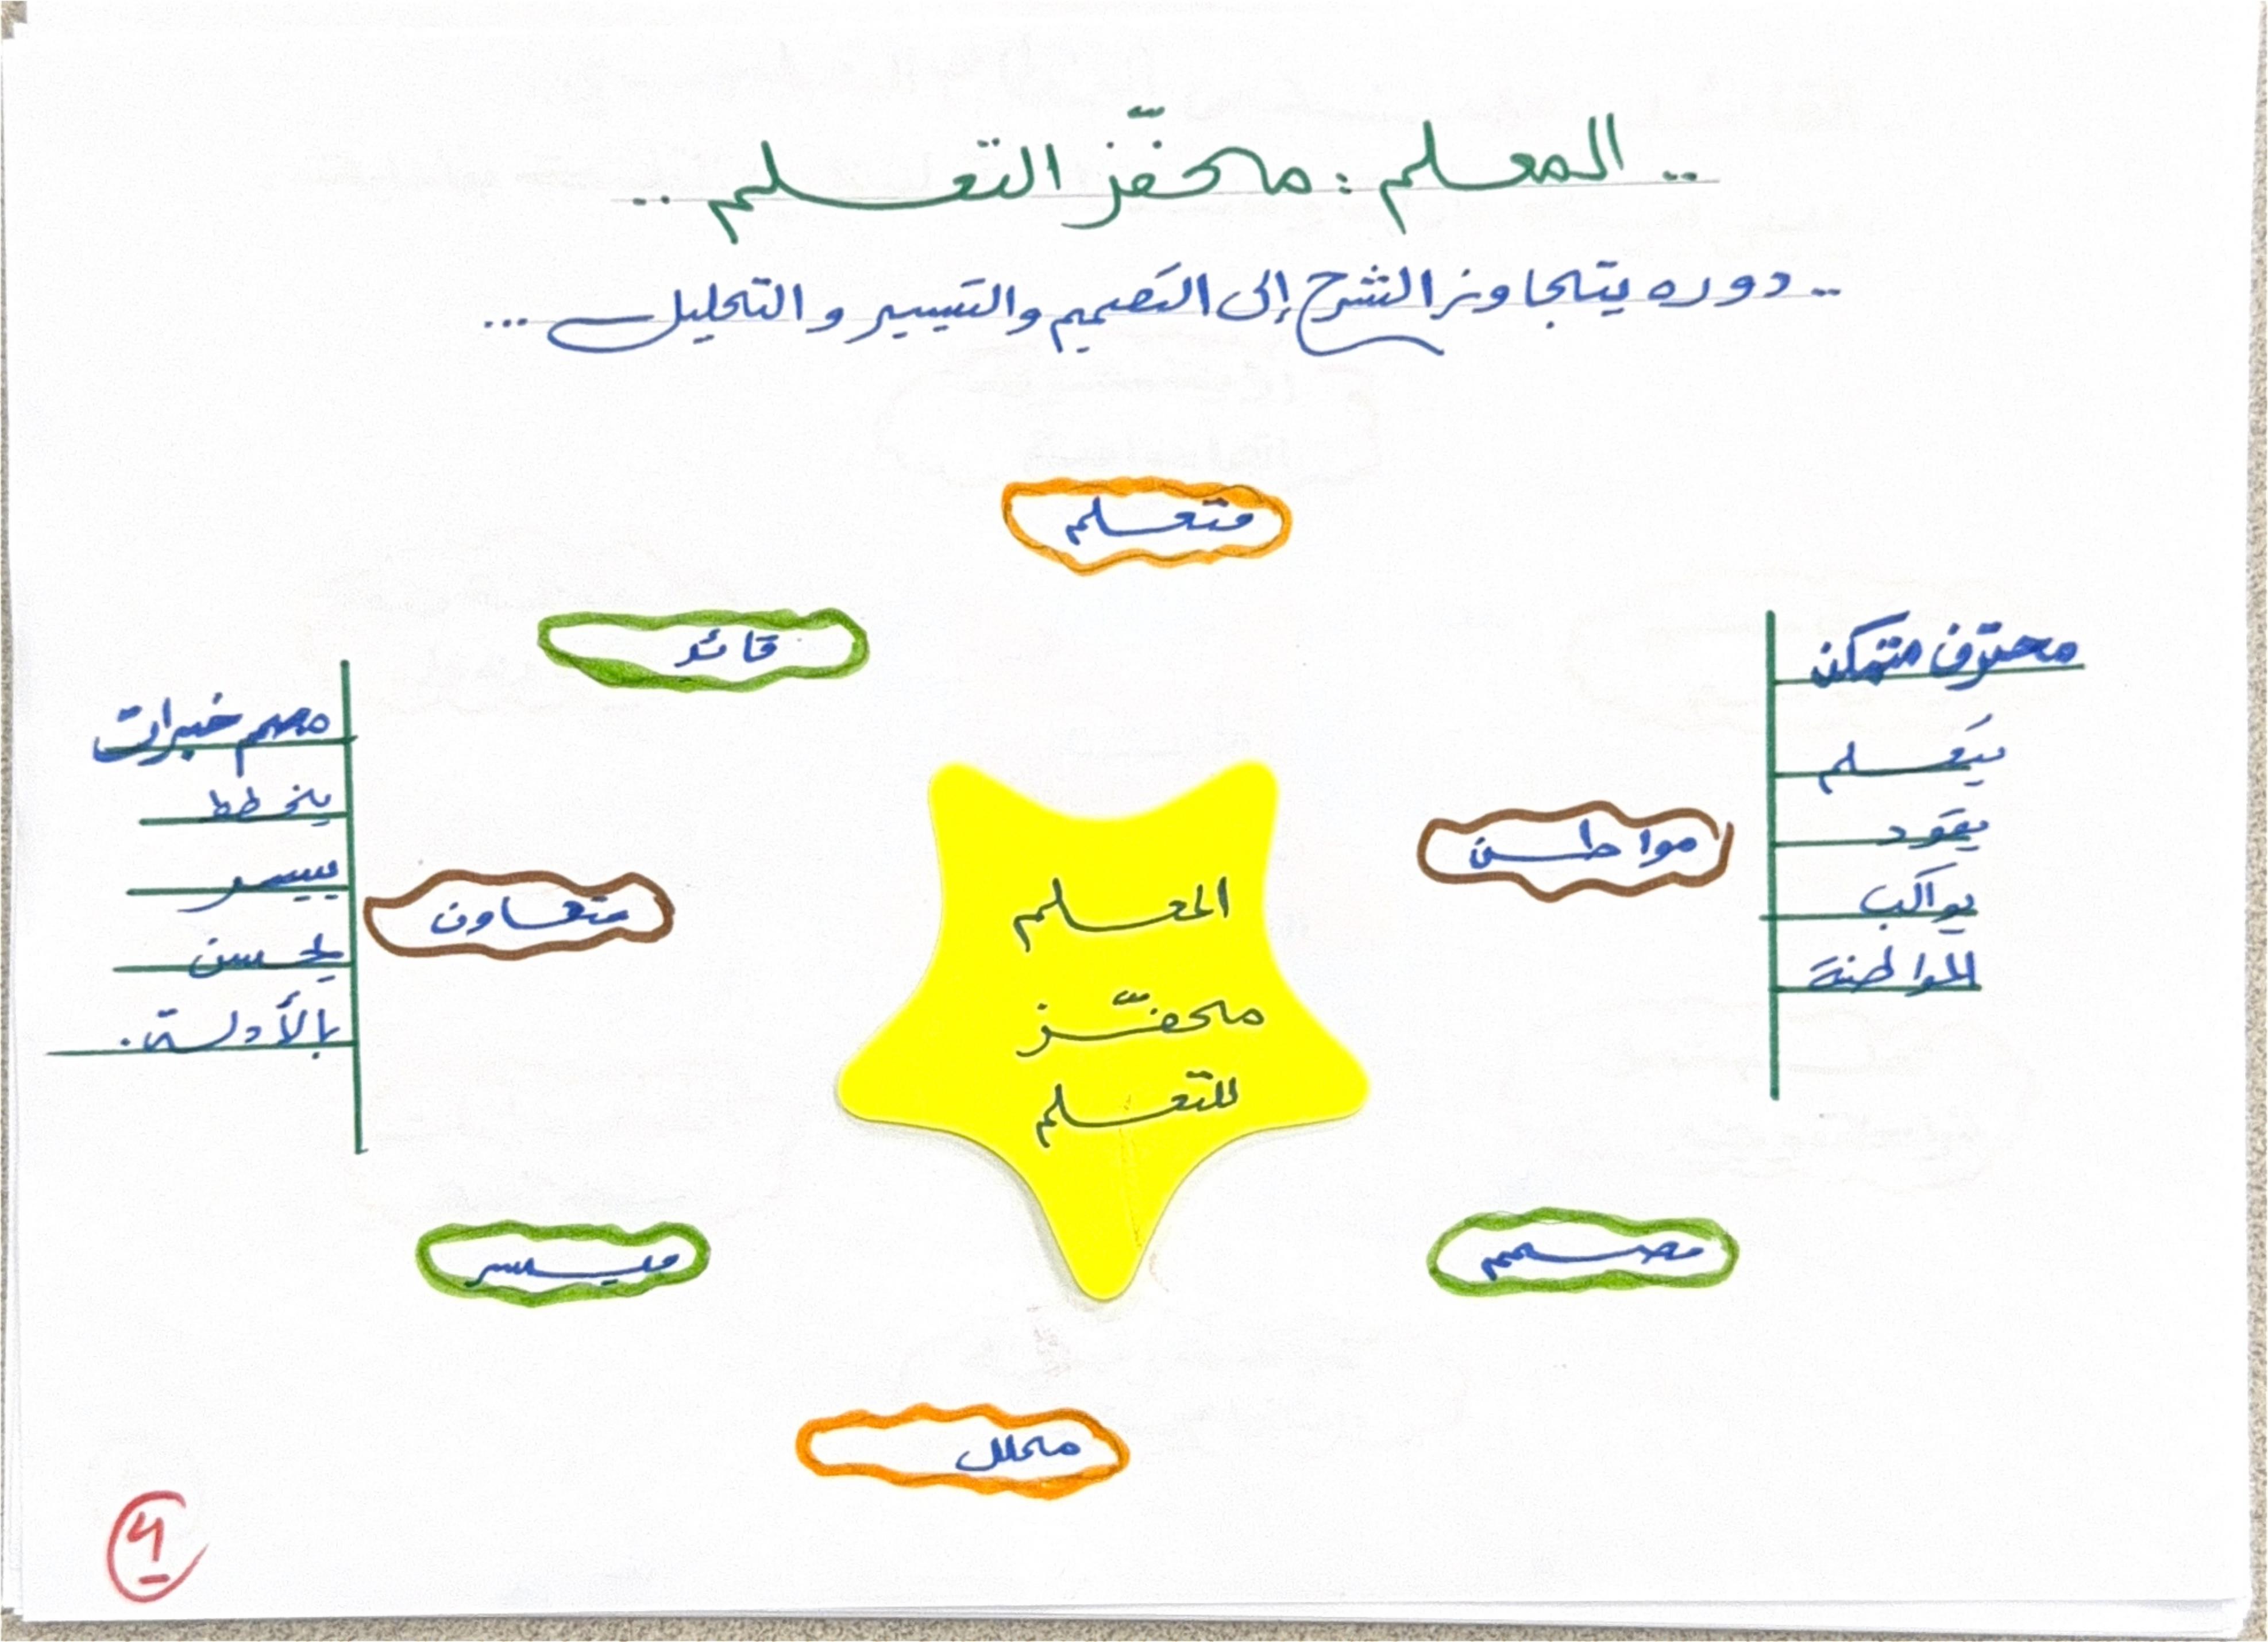 .. المعلم : محفّز التعلم ..
.. دوره يتجاوز الشرح إلى التصميم والتيسير والتحليل ...
متعلم
قائد
محترف متمكن
يتعلم
يقود
يواكب
المواطنة
مواطن
المعلم
محفّز
للتعلم
مصمم خبرات
يخطط
ييسر
يحسن
بالأدلة.
متعاون
ميسر
مصمم
محلل